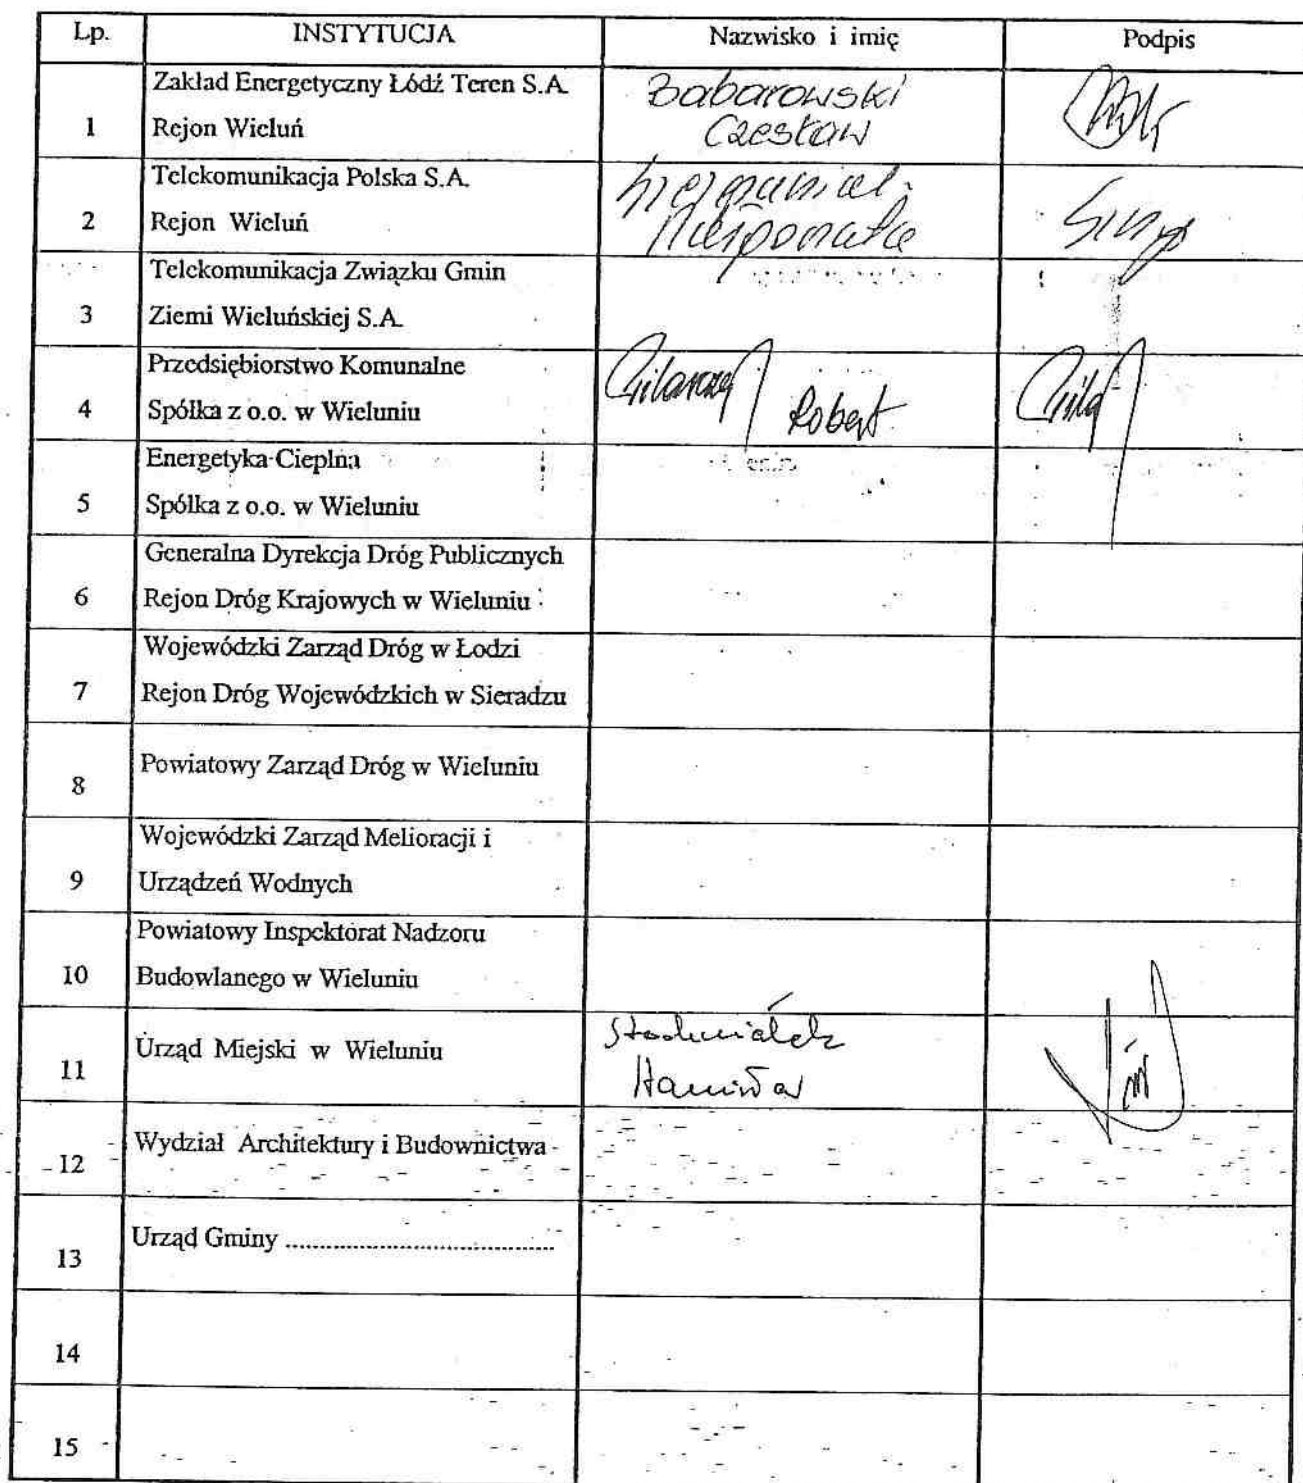 Lp. INSTYTUCJA Nazwisko i imię Podpis
Zakład Energetyczny Łódź Teren S.A. Babarowski
1 Rejon Wieluń Czesław
Telekomunikacja Polska S.A.
2 Rejon Wieluń
Telekomunikacja Związku Gmin
3 Ziemi Wieluńskiej S.A.
Przedsiębiorstwo Komunalne
4 Spółka z o.o. w Wieluniu Robert
Energetyka Cieplna
5 Spółka z o.o. w Wieluniu
Generalna Dyrekcja Dróg Publicznych
6 Rejon Dróg Krajowych w Wieluniu
Wojewódzki Zarząd Dróg w Łodzi
7 Rejon Dróg Wojewódzkich w Sieradzu
8 Powiatowy Zarząd Dróg w Wieluniu
Wojewódzki Zarząd Melioracji i
9 Urządzeń Wodnych
Powiatowy Inspektorat Nadzoru
10 Budowlanego w Wieluniu
11 Urząd Miejski w Wieluniu
12 Wydział Architektury i Budownictwa
13 Urząd Gminy ............................................
14
15